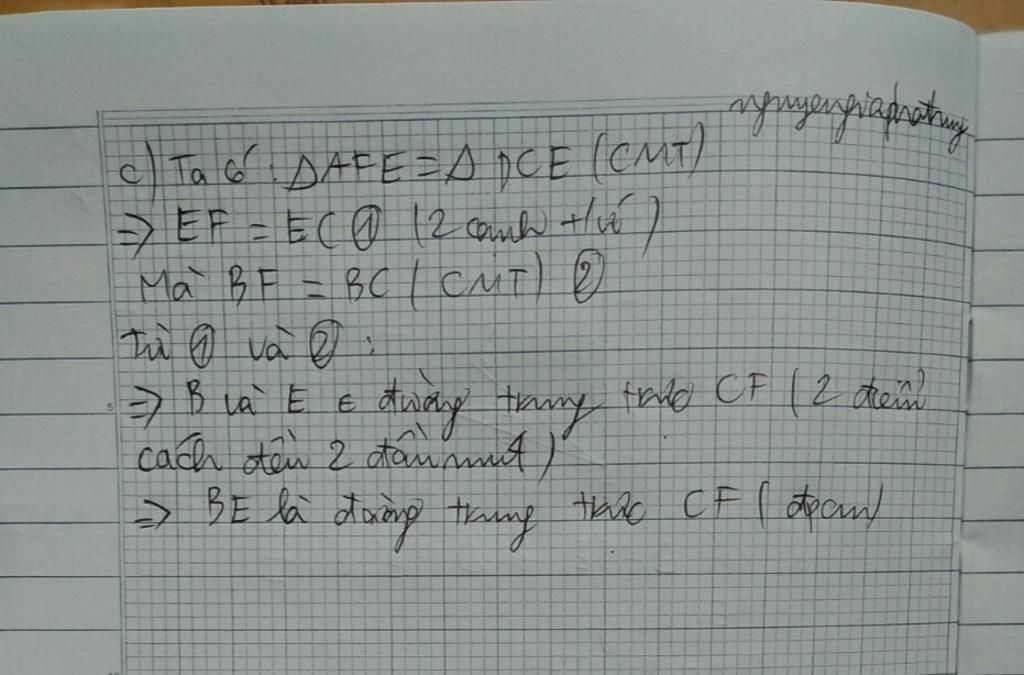 nguyengiaphathuy
c) Ta có : ΔAFE = Δ DCE (CMT)
=> EF = EC ① (2 cạnh t/ứ)
Mà BF = BC (CMT) ②
Từ ① và ② :
=> B và E ∈ đường trung trực CF (2 điểm
cách đều 2 đầu mút)
=> BE là đường trung trực CF (đpcm)